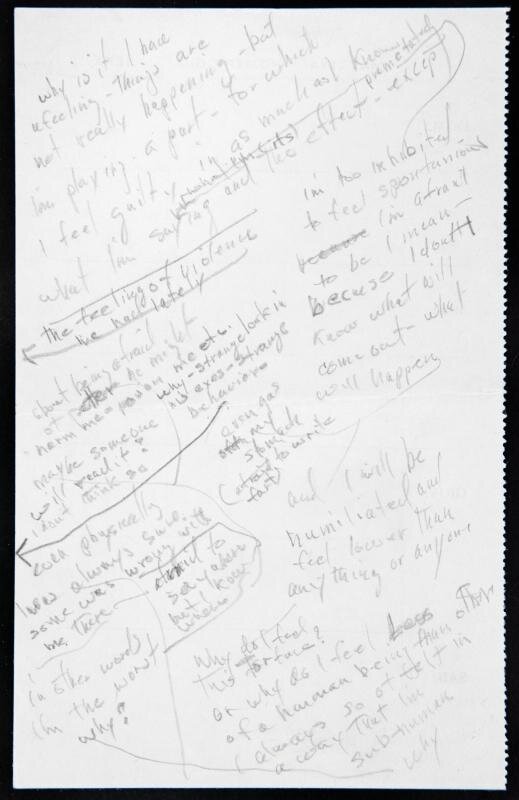 why is it I have
a feeling - things are
not really happening - but
I'm playing a part - for which
I feel guilty in as much as I know
what I'm saying and the effect - excep
the feeling of violence
I've had lately
about being afraid
of Peter he might
harm me - poison me etc.
why - strange look in
his eyes - strange
behavior
maybe someone
will read it?
I don't think so
even physically
have always sure
some was wrong with
me there
afraid to
say where
but I know
where
in other words
I'm the worst
why?
I'm too inhibited
to feel spontanious
because I'm afraid
to be I mean -
because I don't
know what will
come out - what
will happen
even gas
my
stomach
(afraid to write
fart)
and I will be
humiliated and
feel lower than
anything or anyone
why do I feel
this torture?
or why do I feel less
of a human being than others
(always so of felt in
a way that I'm
sub-human
why